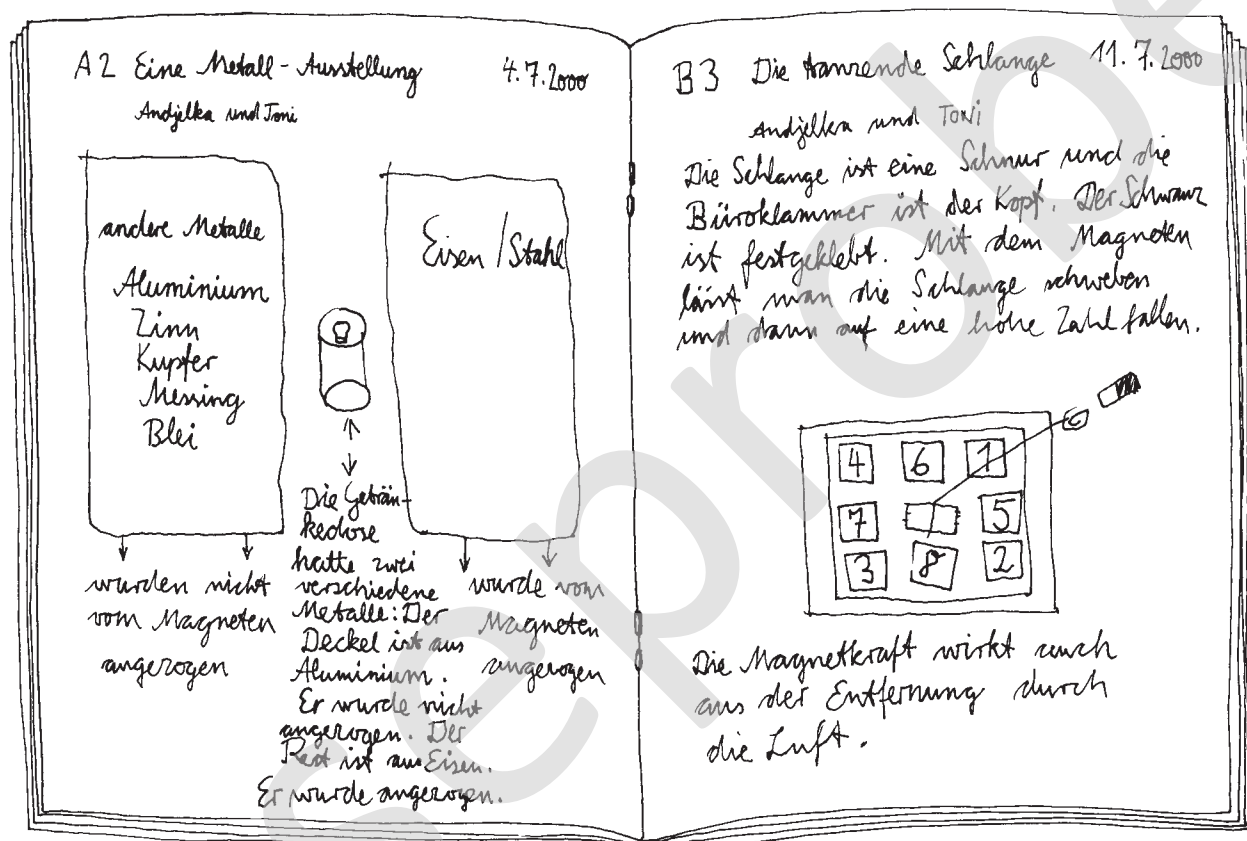 A2 Eine Metall-Ausstellung 4.7.2000
Andjelka und Toni
andere Metalle
Aluminium
Zinn
Kupfer
Messing
Blei
wurden nicht
vom Magneten
angezogen
Die Geträn-
kedose
hatte zwei
verschiedene
Metalle: Der
Deckel ist aus
Aluminium.
Er wurde nicht
angezogen. Der
Rest ist aus Eisen.
Er wurde angezogen.
Eisen/Stahl
wurde vom
Magneten
angezogen
B3 Die tanzende Schlange 11.7.2000
Andjelka und Toni
Die Schlange ist eine Schnur und die
Büroklammer ist der Kopf. Der Schwanz
ist festgeklebt. Mit dem Magneten
lässt man die Schlange schweben
und dann auf eine hohe Zahl fallen.
4 6 1
7 5
3 8 2
Die Magnetkraft wirkt auch
aus der Entfernung durch
die Luft.